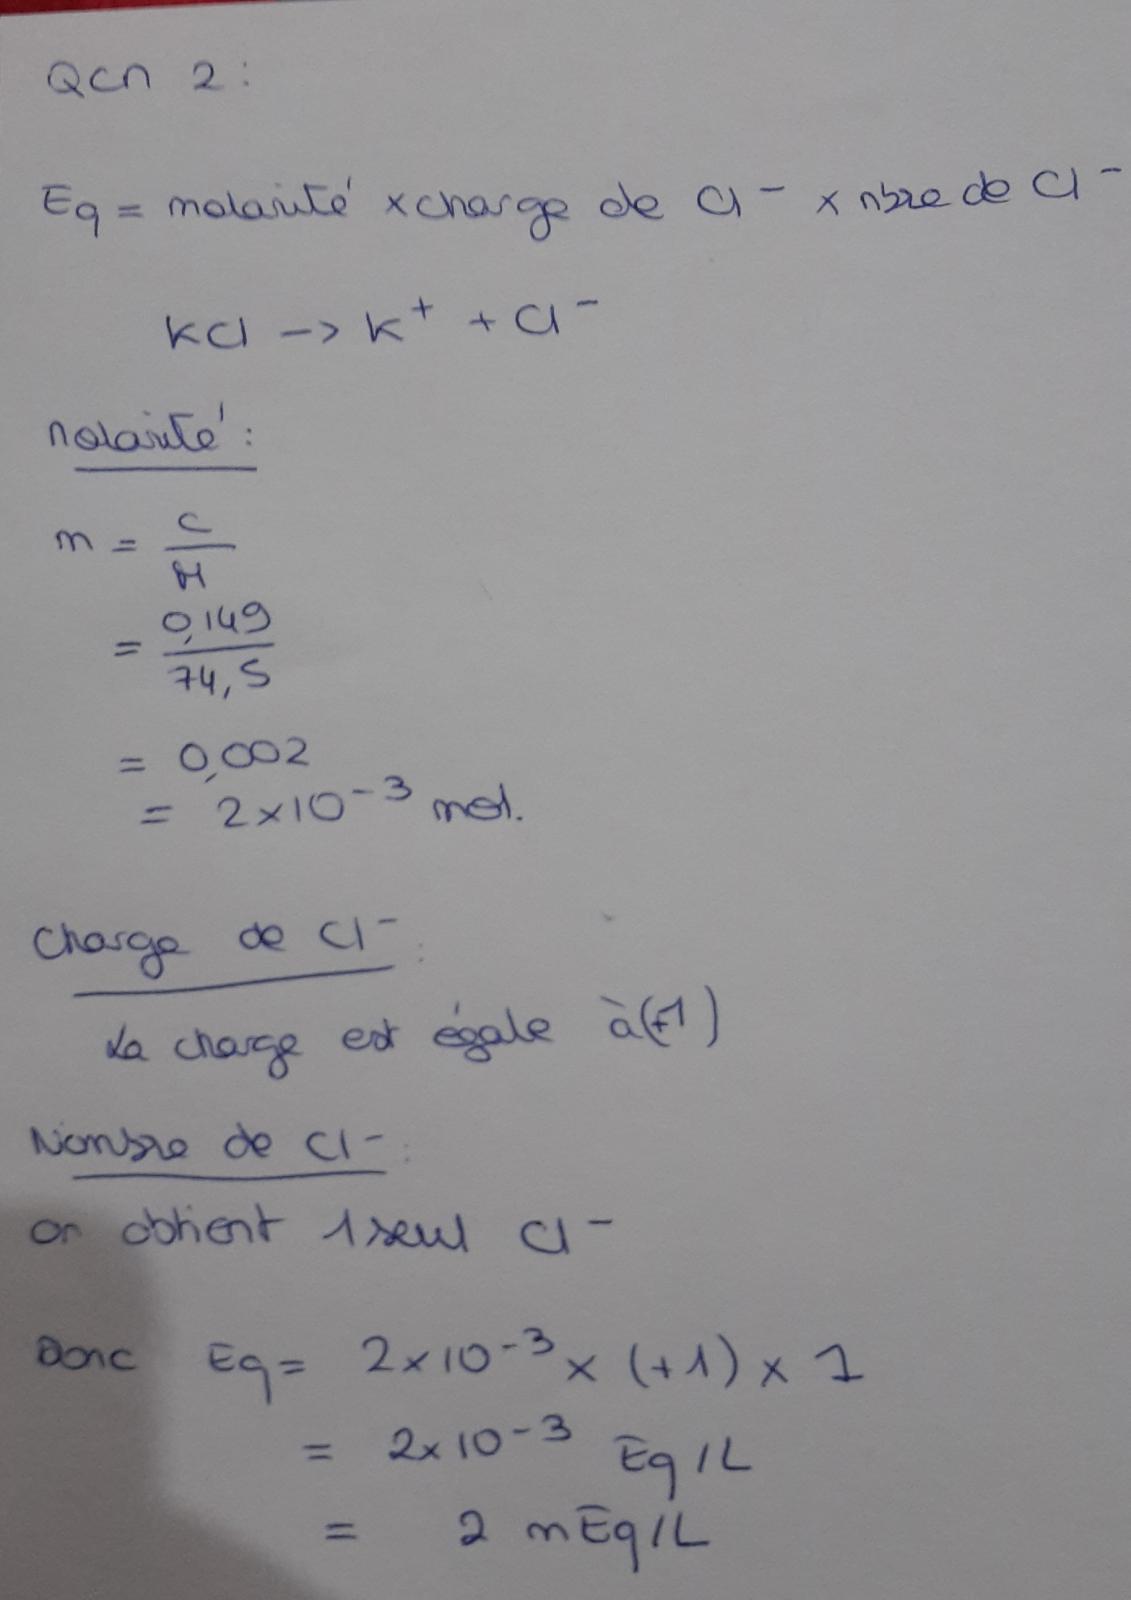 QCM 2 :
Eq = molarité x charge de Cl⁻ x nbre de Cl⁻
KCl -> K⁺ + Cl⁻
Molarité :
m = C / M
= 0,149 / 74,5
= 0,002
= 2x10⁻³ mol.
Charge de Cl⁻ :
La charge est égale à (+1)
Nombre de Cl⁻ :
on obtient 1 seul Cl⁻
Donc Eq = 2x10⁻³ x (+1) x 1
= 2x10⁻³ Eq/L
= 2 mEq/L